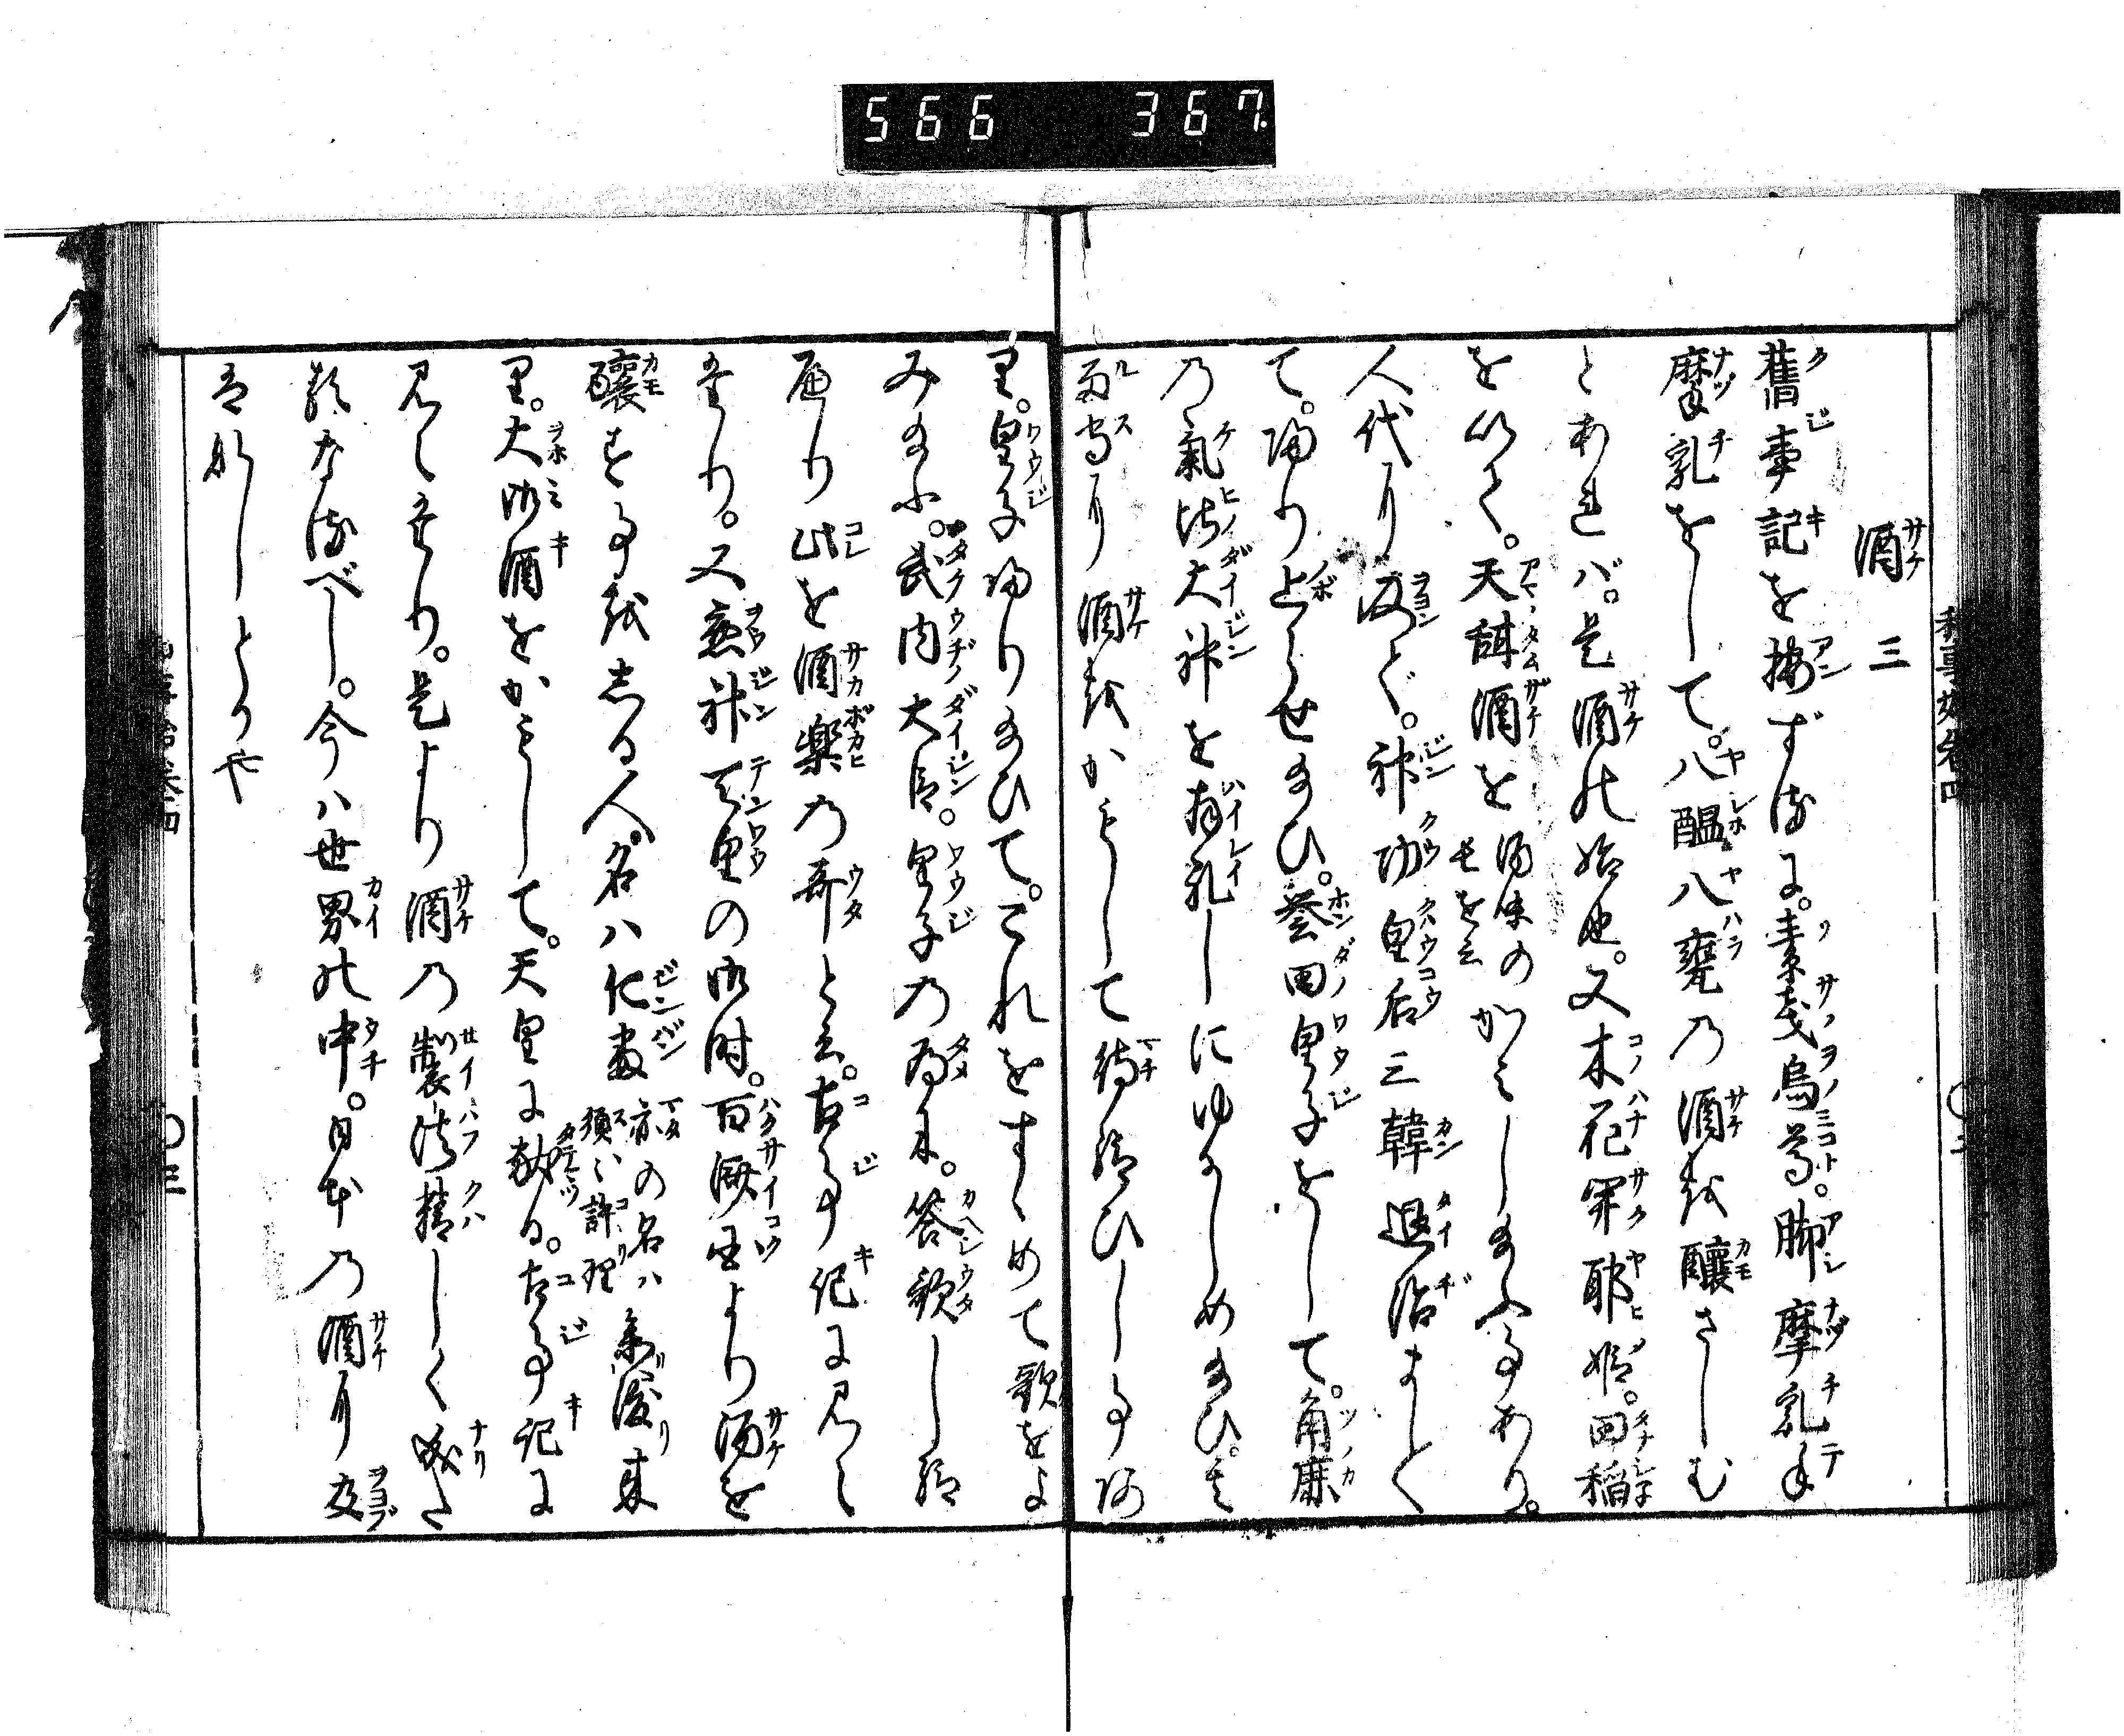 566 367.
酒 三
舊事記を按ずるに。素戔烏尊。脚摩乳手
摩乳をして。八醞八甕乃酒を醸さしむ
とあれバ。是酒の始也。又木花開耶姫。田稲
を以て。天甜酒を 酒味のかろきをも云 かみし給ふ事あり。
人代に及て。神功皇后三韓退治まして
て。帰り上らせ給ひ。誉田皇子をして。角鹿
乃氣比大神を拝礼しにゆかしめ給ひ。其
留守に酒をかもして待給ひし事
り。皇子帰り給ひて。これをすゝめて歌をよ
み給ふ。武内大臣。皇子乃為に。答歌し給
へり此を酒楽乃哥と云。古事記に見へ
たり。又應神天皇の御時。百済国より酒を
醸する事を志る人。名ハ仁番 亦の名ハ須々許理 参渡来
り。大御酒をかもして。天皇に献る。古事記に
見へたり。是より酒乃製法精しく成た
類なるべし。今ハ世界の中。日本乃酒に及ぶ
ハなしとかや